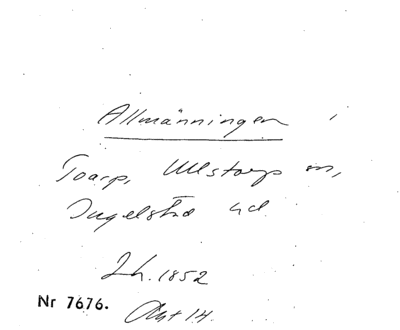 Allmänningen i
Toarp, Ullstorps sn,
Ingelstad hd
Lh. 1852
Nr 7676. Akt 14.